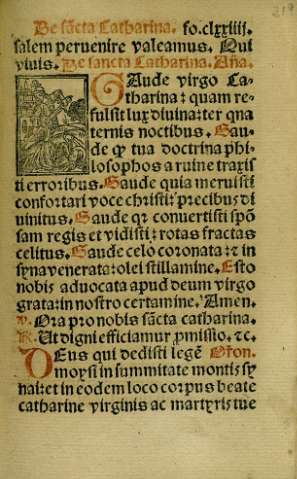 De sācta Catharina. fo.clxxiiii.
salem peruenire valeamus. Qui
viuis. De sancta Catharina. Aña.
GAude virgo Ca-
tharina: quam re-
fulsit lux diuina: ter qua
ternis noctibus. Gau-
de ꝙ tua doctrina phi-
losophos a ruine traxis
ti erroribus. Gaude quia meruisti
confortari voce christi: precibus di
uinitus. Gaude qr conuertisti spōn
sam regis et vidisti: rotas fractas
celitus. Gaude celo coronata: ⁊ in
syna venerata: olei stillamine. Esto
nobis aduocata apud deum virgo
grata: in nostro certamine. Amen.
v. Ora pro nobis sācta catharina.
R. Ut digni efficiamur ꝓmissio. ⁊c.
DEus qui dedisti legē Orōn.
moysi in summitate montis sy
nai: et in eodem loco corpus beate
catharine virginis ac martyris tue